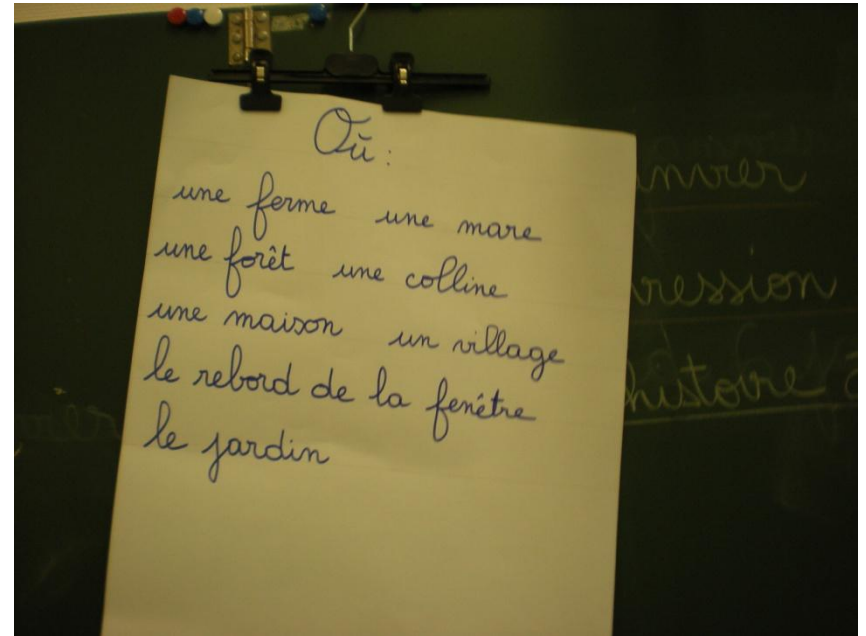 Où :
une ferme une mare
une forêt une colline
une maison un village
le rebord de la fenêtre
le jardin
histoire